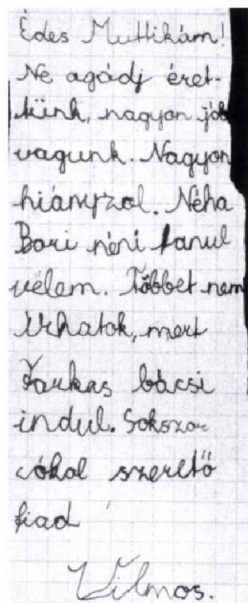 Édes Muttikám!
Ne agódj éret-
tünk, nagyon jób
vagunk. Nagyon
hiányzol. Néha
Bori néni tanul
vélem. Többet nem
írhatok, mert
Farkas bácsi
indul. Sokszor
cókol szerető
fiad
Vilmos.